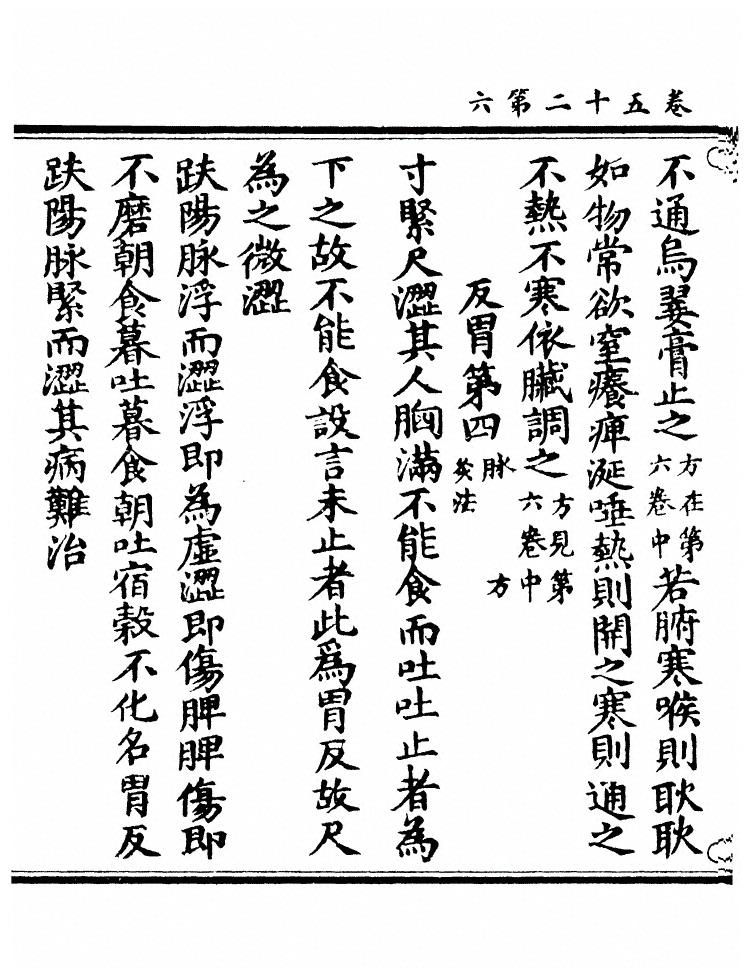 卷五十二第六
不通烏翣膏止之方在第六卷中若腑寒喉則耿耿
如物常欲窒癢痺涎唾熱則開之寒則通之
不熱不寒依臟調之方見第六卷中
反胃第四脉方灸法
寸緊尺澀其人胸滿不能食而吐吐止者為
下之故不能食設言未止者此爲胃反故尺
為之微澀
趺陽脉浮而澀浮即為虛澀即傷脾脾傷即
不磨朝食暮吐暮食朝吐宿穀不化名胃反
趺陽脉緊而澀其病難治